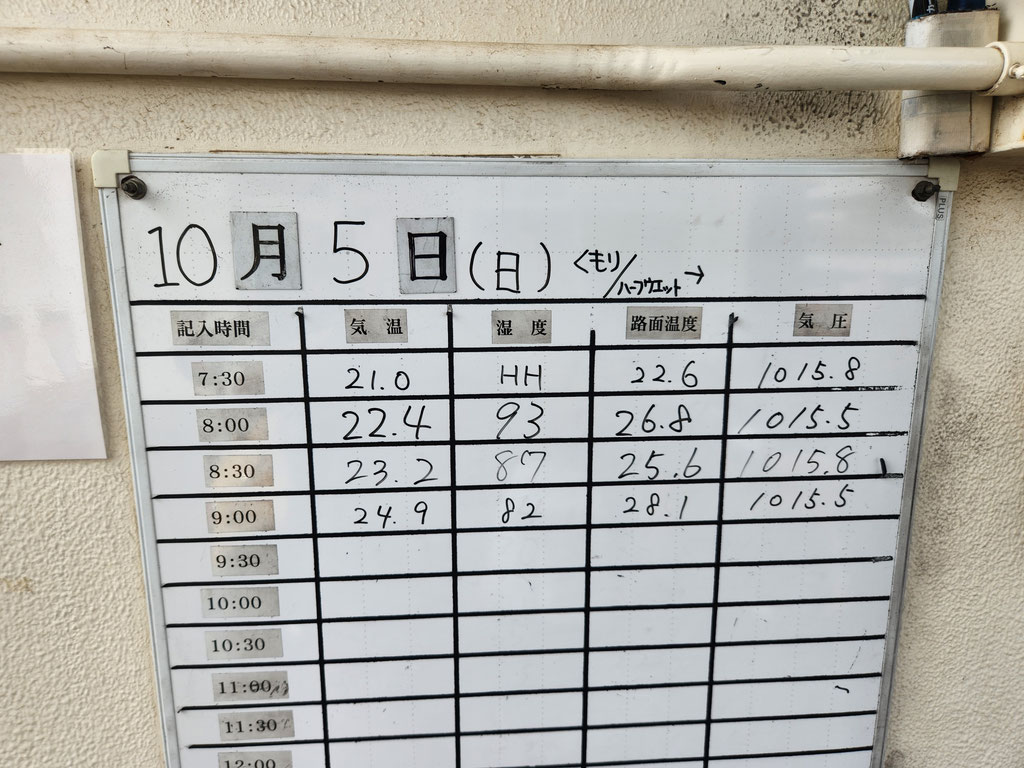 10月5日(日) くもり/ハーフウエット→
PLUS
記入時間 気温 湿度 路面温度 気圧
7:30 21.0 HH 22.6 1015.8
8:00 22.4 93 26.8 1015.5
8:30 23.2 87 25.6 1015.8
9:00 24.9 82 28.1 1015.5
9:30
10:00
10:30
11:00
11:30
12:00